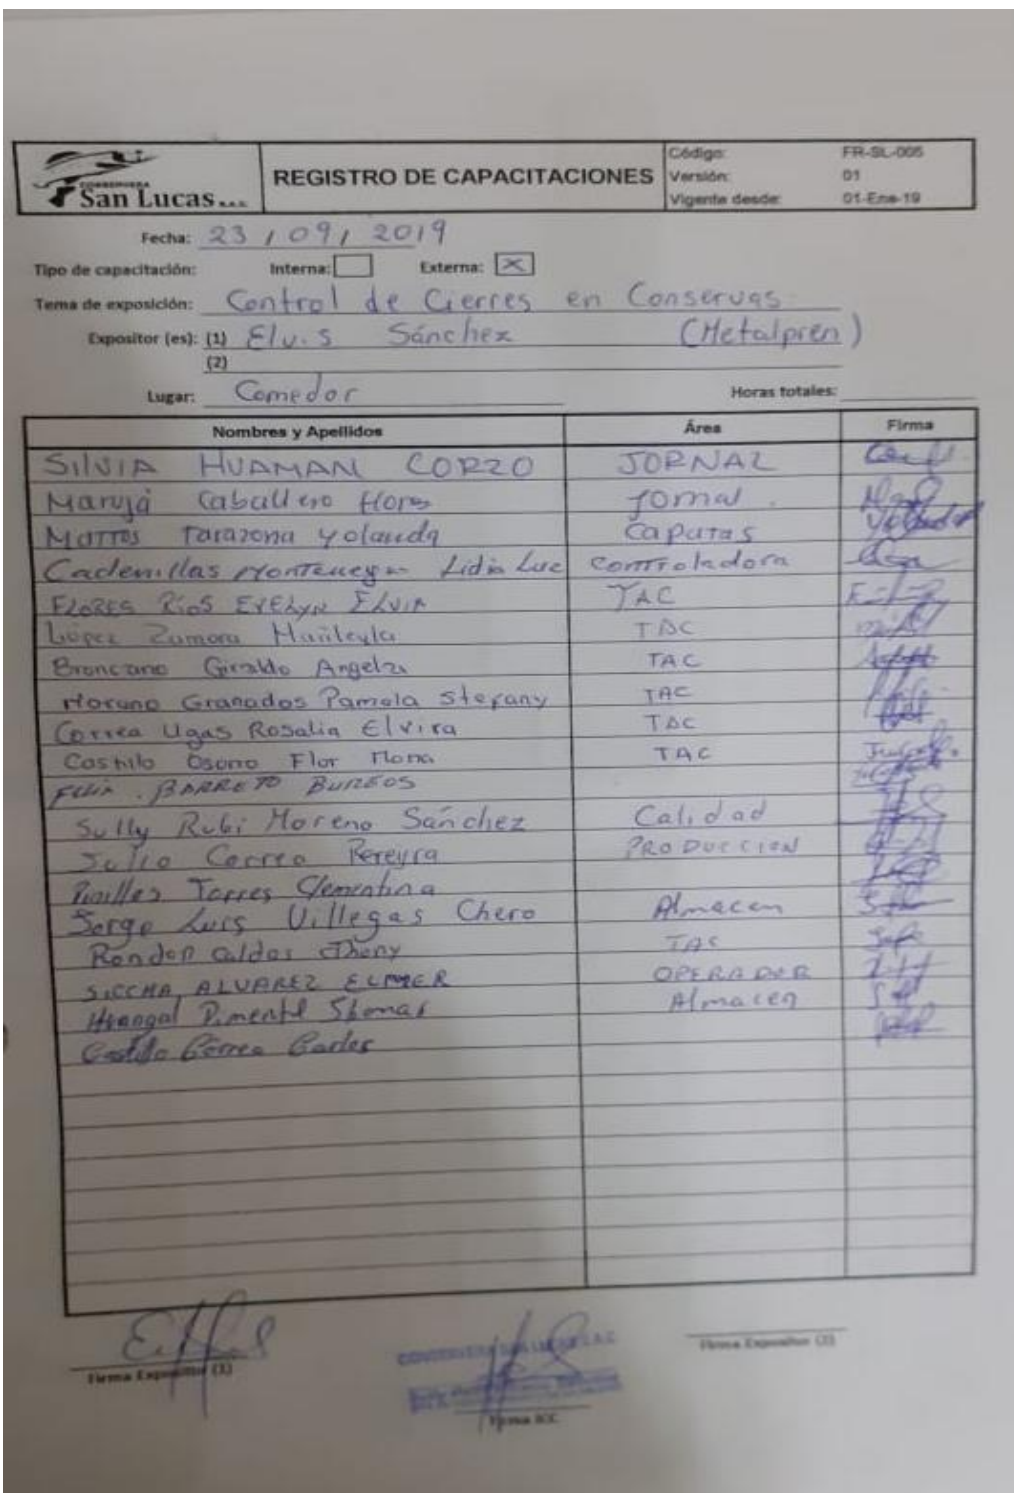 CONSERVERA
San Lucas S.A.C.
REGISTRO DE CAPACITACIONES
Código: FR-SL-005
Versión: 01
Vigente desde: 01-Ene-19
Fecha: 23 / 09 / 2019
Tipo de capacitación: Interna: Externa: X
Tema de exposición: Control de Cierres en Conservas
Expositor (es): (1) Elvis Sánchez (Metalpren)
(2)
Lugar: Comedor Horas totales:
Nombres y Apellidos Área Firma
SILVIA HUAMAN CORZO JORNAL
Maruja Caballero Flores Jornal
Mattos Tarazona Yolanda Capatas
Cadenillas Montenegro Lidia Luc Controladora
FLORES Rios EVELYN ELVIA TAC
Lopez Zamora TAC
Broncano Giraldo Angela TAC
Moreno Granados Pamela Stefany TAC
Correa Ugas Rosalia Elvira TAC
Castillo Osorio Flor Maria TAC
BARRETO BURGOS
Sully Rubi Moreno Sánchez Calidad
Julio Correa Pereyra PRODUCCION
Torres Clementina
Sergo Luis Villegas Chero Almacen
Rondon Caldas Jhony TAC
SICCHA ALVAREZ ELMER OPERADOR
Pimentel Almacen
Castillo Correa Carlos
Firma Expositor (1)
Firma Expositor (2)